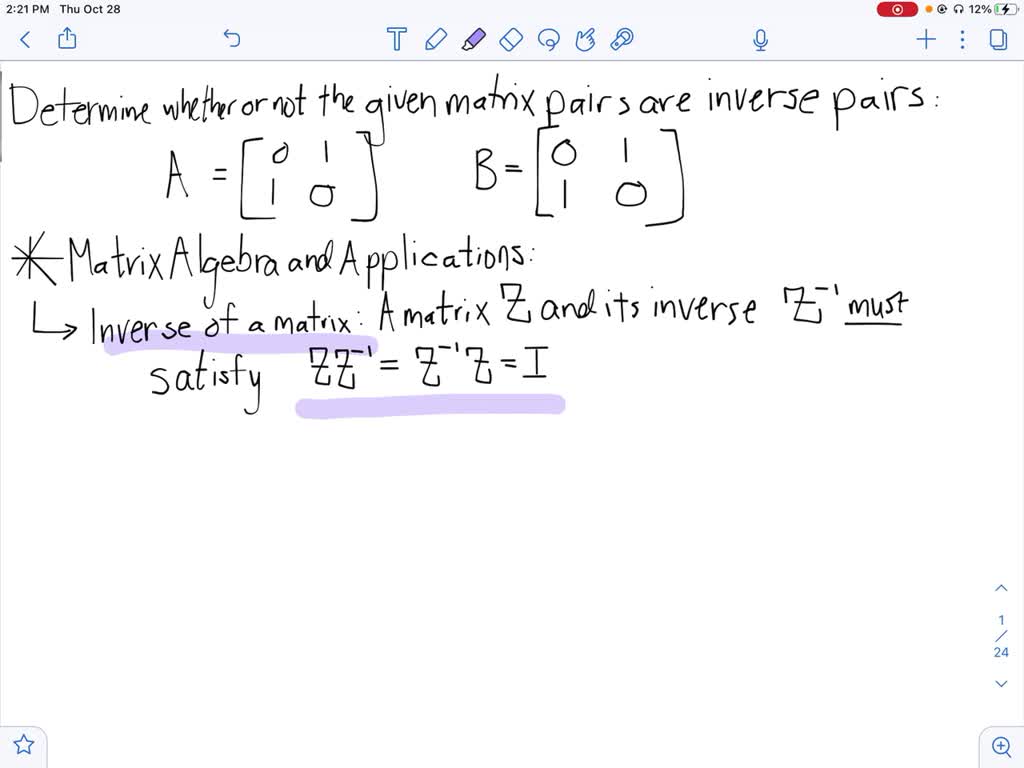 2:21 PM Thu Oct 28 12%
T
Determine whether or not the given matrix pairs are inverse pairs:
A = [0 1
1 0] B = [0 1
1 0]
* Matrix Algebra and Applications:
↳ Inverse of a matrix: A matrix Z and its inverse Z⁻¹ must
satisfy ZZ⁻¹ = Z⁻¹Z = I
1
/
24